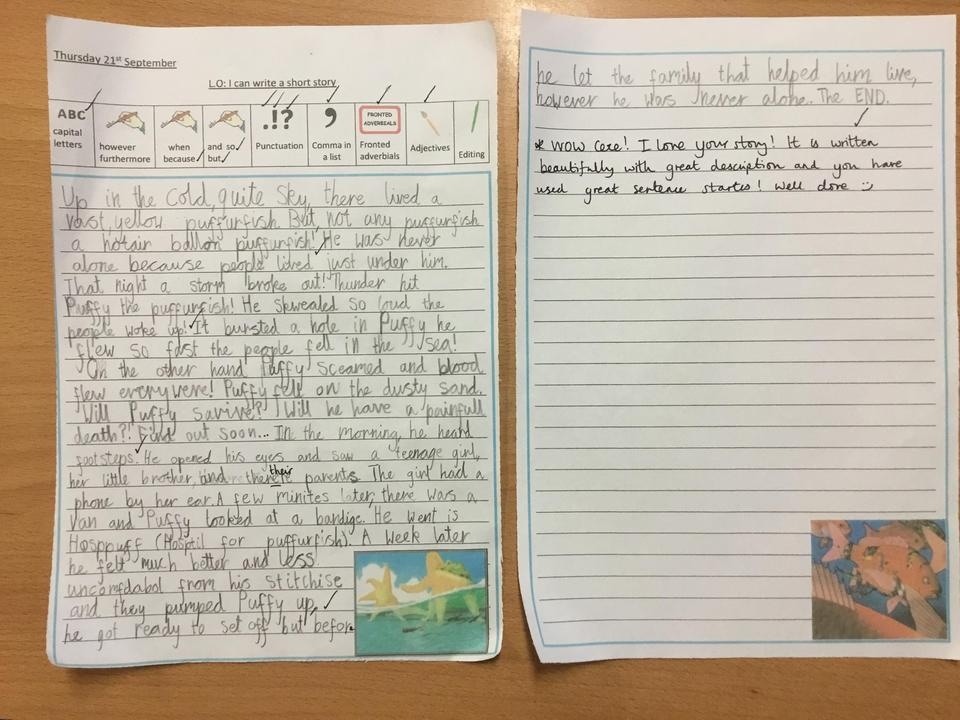 Thursday 21st September
LO: I can write a short story
ABC
capital
letters
however
furthermore
when
because
and so
but
.!?
Punctuation
,
Comma in
a list
FRONTED
ADVERBIALS
Fronted
adverbials
Adjectives
Editing
Up in the Cold, quite Sky, there lived a
vast, yellow puffurfish. But, not any puffurfish
a hotair ballon puffurfish! He was never
alone because people lived just under him.
That night a storm broke out! Thunder hit
Puffy the puffurfish! He Skwealed so loud the
people woke up! It bursted a hole in Puffy he
flew so fast the people fell in the sea!
On the other hand Puffy screamed and blood
flew everywere! Puffy fell on the dusty sand.
Will Puffy savive? Will he have a painfull
death?! Find out soon... In the morning, he heard
footsteps. He opened his eyes and saw a teenage girl,
her little brother, and their parents. The girl had a
phone by her ear. A few minites later, there was a
Van and Puffy looked at a bandige. He went is
Hosppuff (Hosptil for puffurfish). A week later
he felt much better and less
uncomfdabol from his stitchise
and they pumped Puffy up,
he got ready to set off but before
he let the family that helped him live,
however he was never alone. The END.
* WOW! I love your story! It is written
beautifully with great description and you have
used great sentence starters! Well done